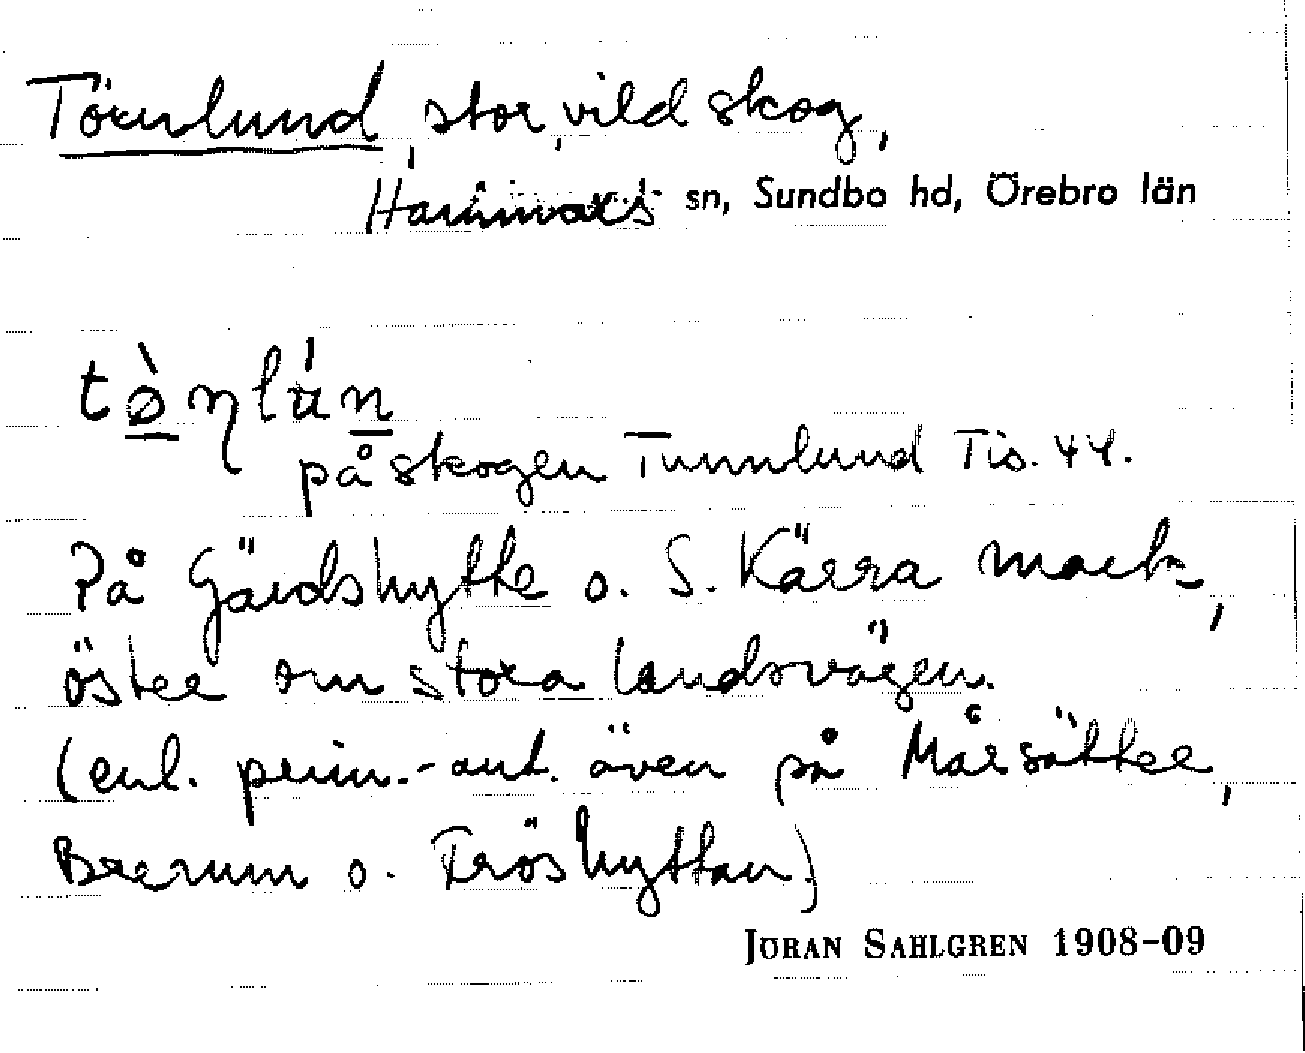 Törnlund, stor, vild skog,
Hammars sn, Sundbo hd, Örebro län
tø̀ɳlún
på skogen Tunnlund Tis. 44.
På Gärdshytte o. S. Kärra mark,
öster om stora landsvägen.
(enl. prim.-ant. även på Mårsätter,
Brerum o. Fröshyttan)
JÖRAN SAHLGREN 1908-09